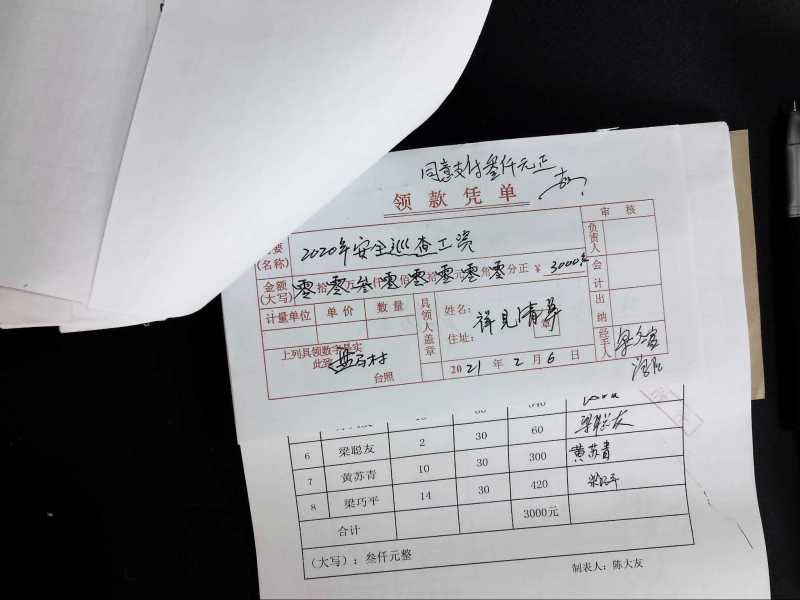 同意支付叁仟元正
领款凭单
审核
要
(名称)
2020年安全巡查工资
负责人
金额
(大写)
零拾零万叁仟零佰零拾零元零角零分正 ¥ 3000元
会计
计量单位 单价 数量
具领人盖章
姓名:
住址:
祥见清单
出纳
上列具领数字是实
此致
台照
2021年2月6日
经手人
60
6 梁聪友 2 30 60 梁聪友
7 黄苏青 10 30 300 黄苏青
8 梁巧平 14 30 420
合计 3000元
(大写):叁仟元整
制表人:陈大友